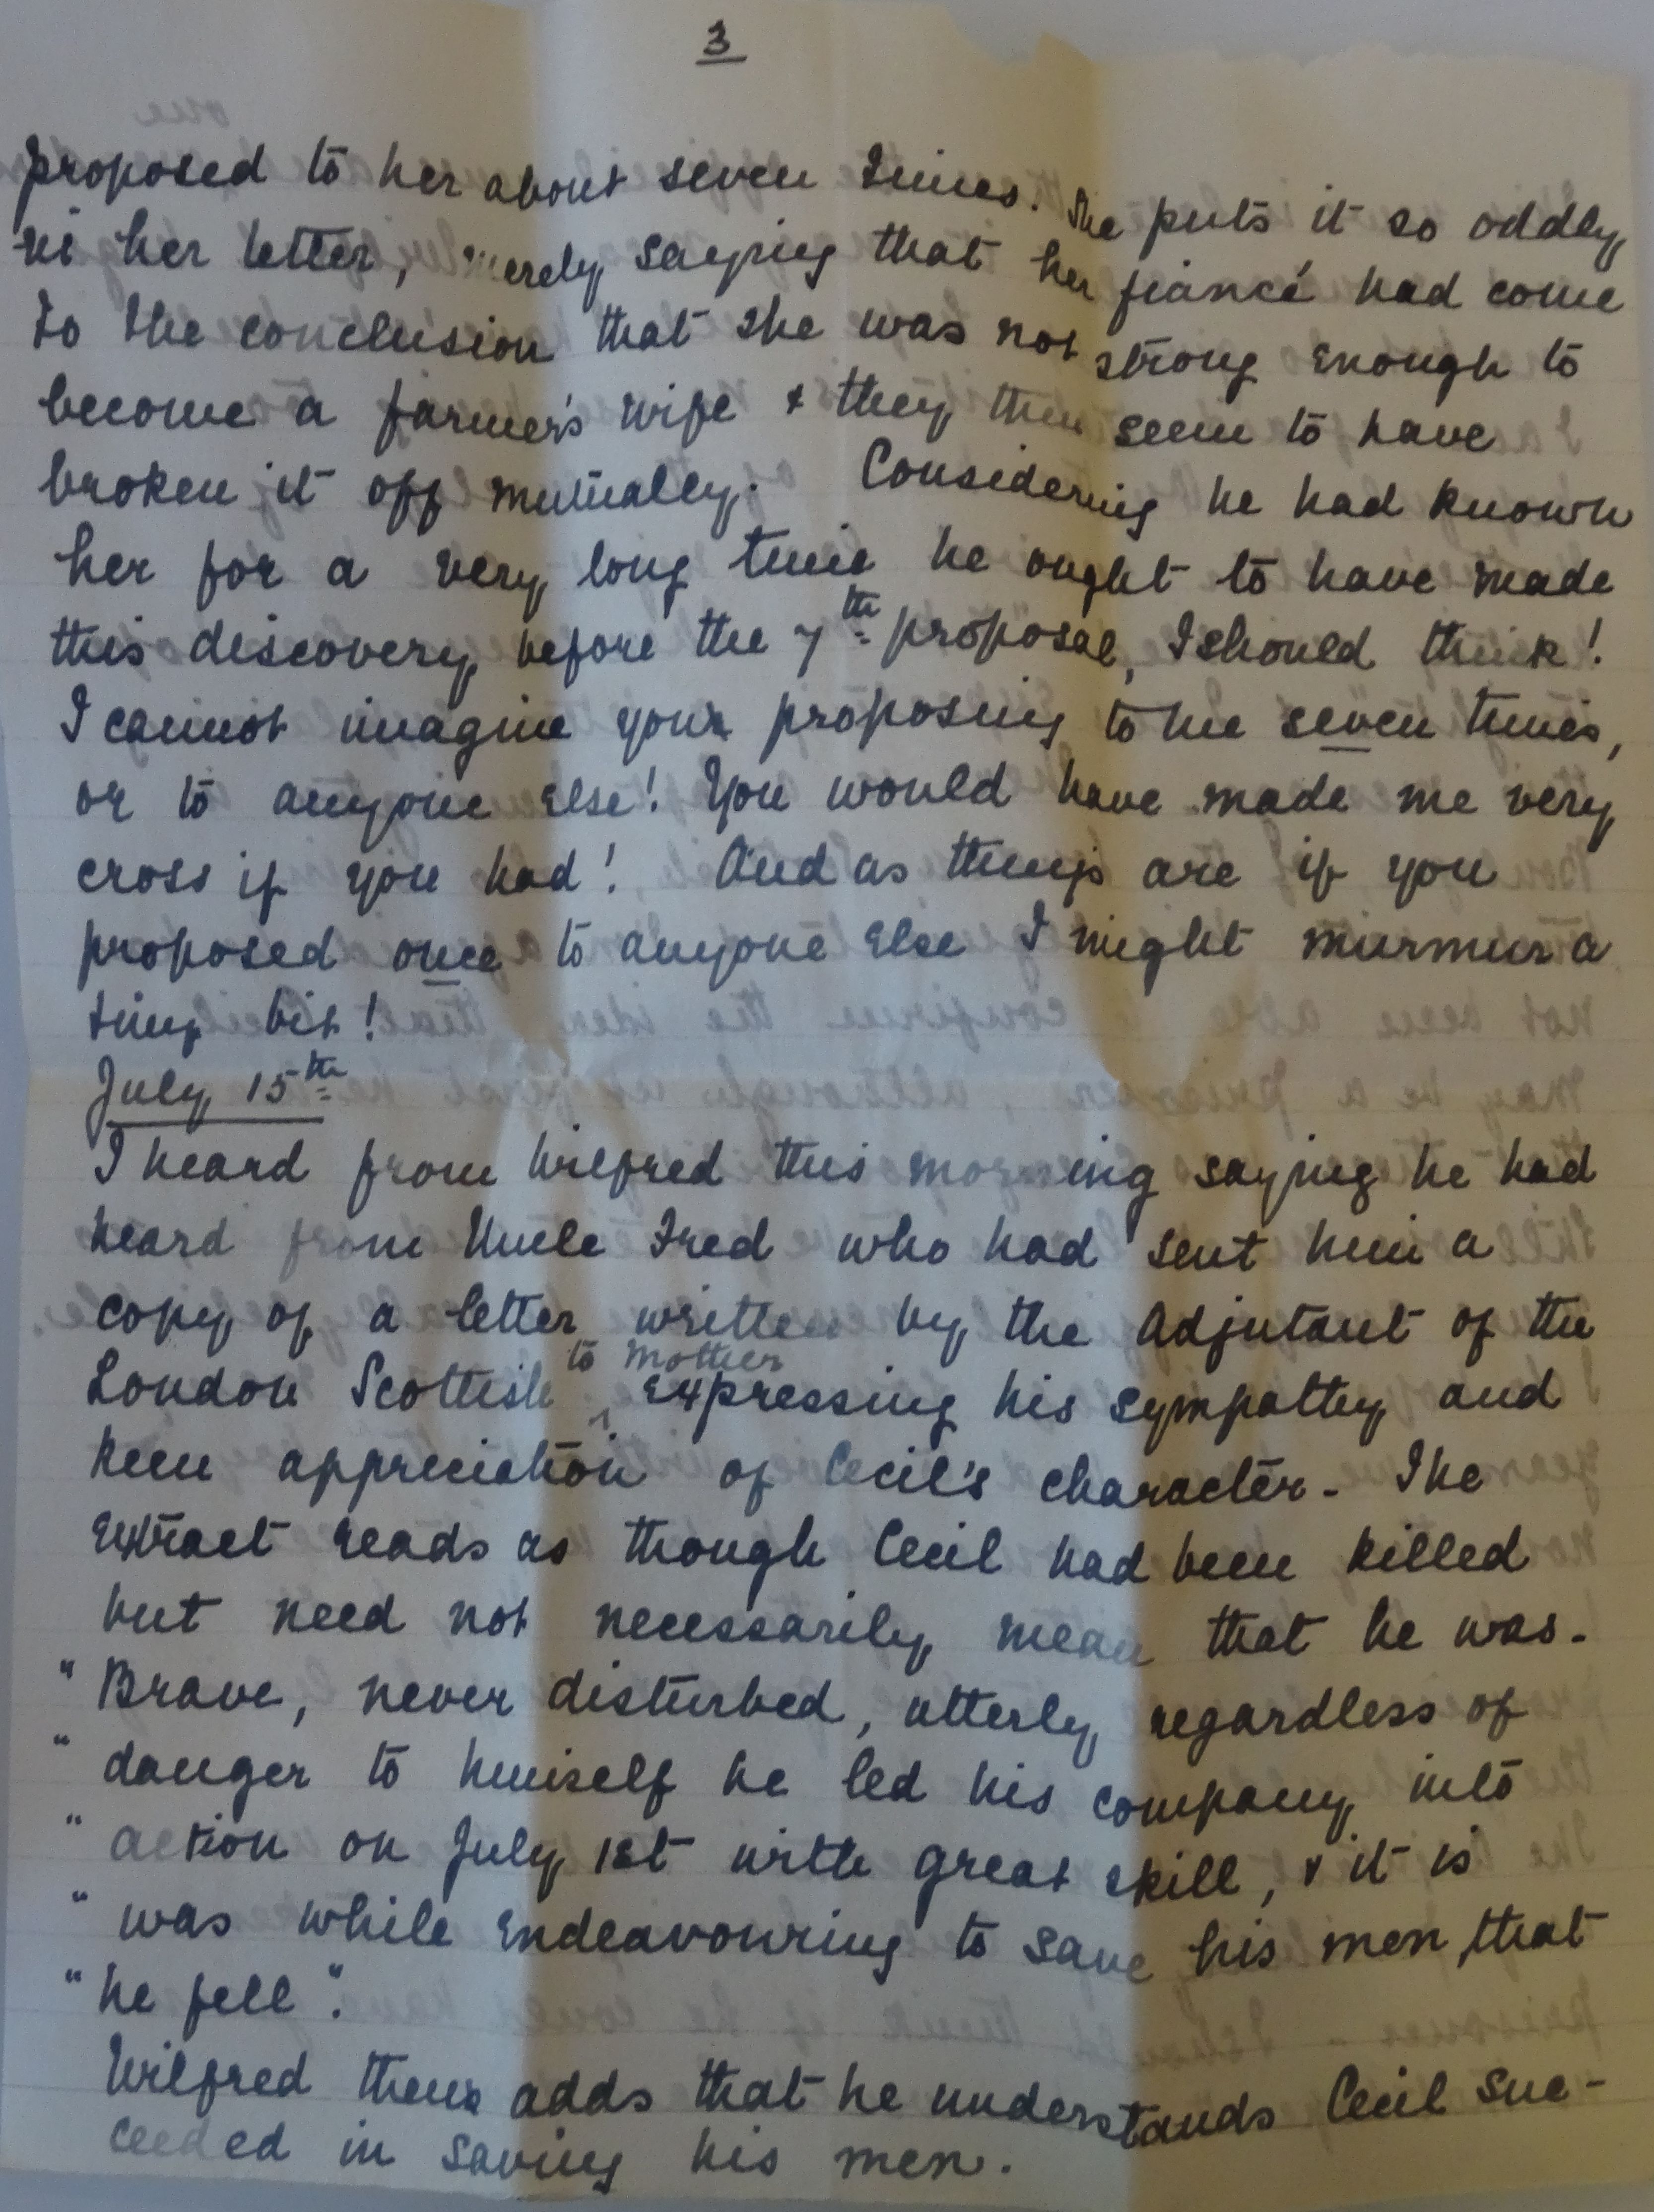 3
proposed to her about seven times. She puts it so oddly
in her letter, merely saying that her fiancé had come
to the conclusion that she was not strong enough to
become a farmer's wife & they then seem to have
broken it off mutually. Considering he had known
her for a very long time he ought to have made
this discovery before the 7th proposal, I should think!
I cannot imagine your proposing to me seven times,
or to anyone else! You would have made me very
cross if you had! And as things are if you
proposed once to anyone else I might murmur a
tiny bit!
July 15th
I heard from Wilfred this morning saying he had
heard from Uncle Fred who had sent him a
copy of a letter written by the Adjutant of the
to Mother
London Scottish ^ expressing his sympathy and
keen appreciation of Cecil's character - The
extract reads as though Cecil had been killed
but need not necessarily mean that he was -
"Brave, never disturbed, utterly regardless of
" danger to himself he led his company into
" action on July 1st with great skill, & it is
" was while endeavouring to save his men, that
" he fell".
Wilfred then adds that he understands Cecil suc-
ceeded in saving his men.